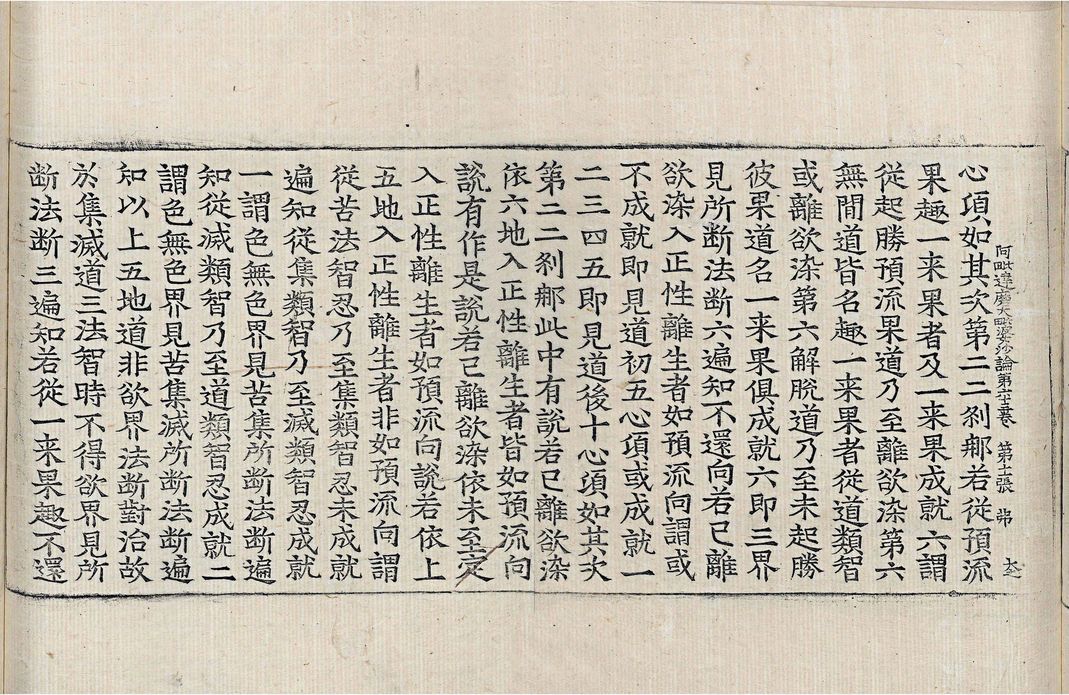 阿毗達磨大毗婆沙論第六十三卷 第十二張 弗
心項如其次第二二刹郍若從預流
果趣一来果者及一来果成就六謂
從起勝預流果道乃至離欲染第六
無間道皆名趣一来果者從道類智
或離欲染第六解脫道乃至未起勝
彼果道名一来果俱成就六即三界
見所断法断六遍知不還向若已離
欲染入正性離生者如預流向謂或
不成就即見道初五心項或成就一
二三四五即見道後十心項如其次
第二二刹郍此中有說若已離欲染
依六地入正性離生者皆如預流向
說有作是說若已離欲染依未至定
入正性離生者如預流向說若依上
五地入正性離生者非如預流向謂
從苦法智忍乃至集類智忍未成就
遍知從集類智乃至滅類智忍成就
一謂色無色界見苦集所断法断遍
知從滅類智乃至道類智忍成就二
謂色無色界見苦集滅所断法断遍
知以上五地道非欲界法断對治故
於集滅道三法智時不得欲界見所
断法断三遍知若從一来果趣不還